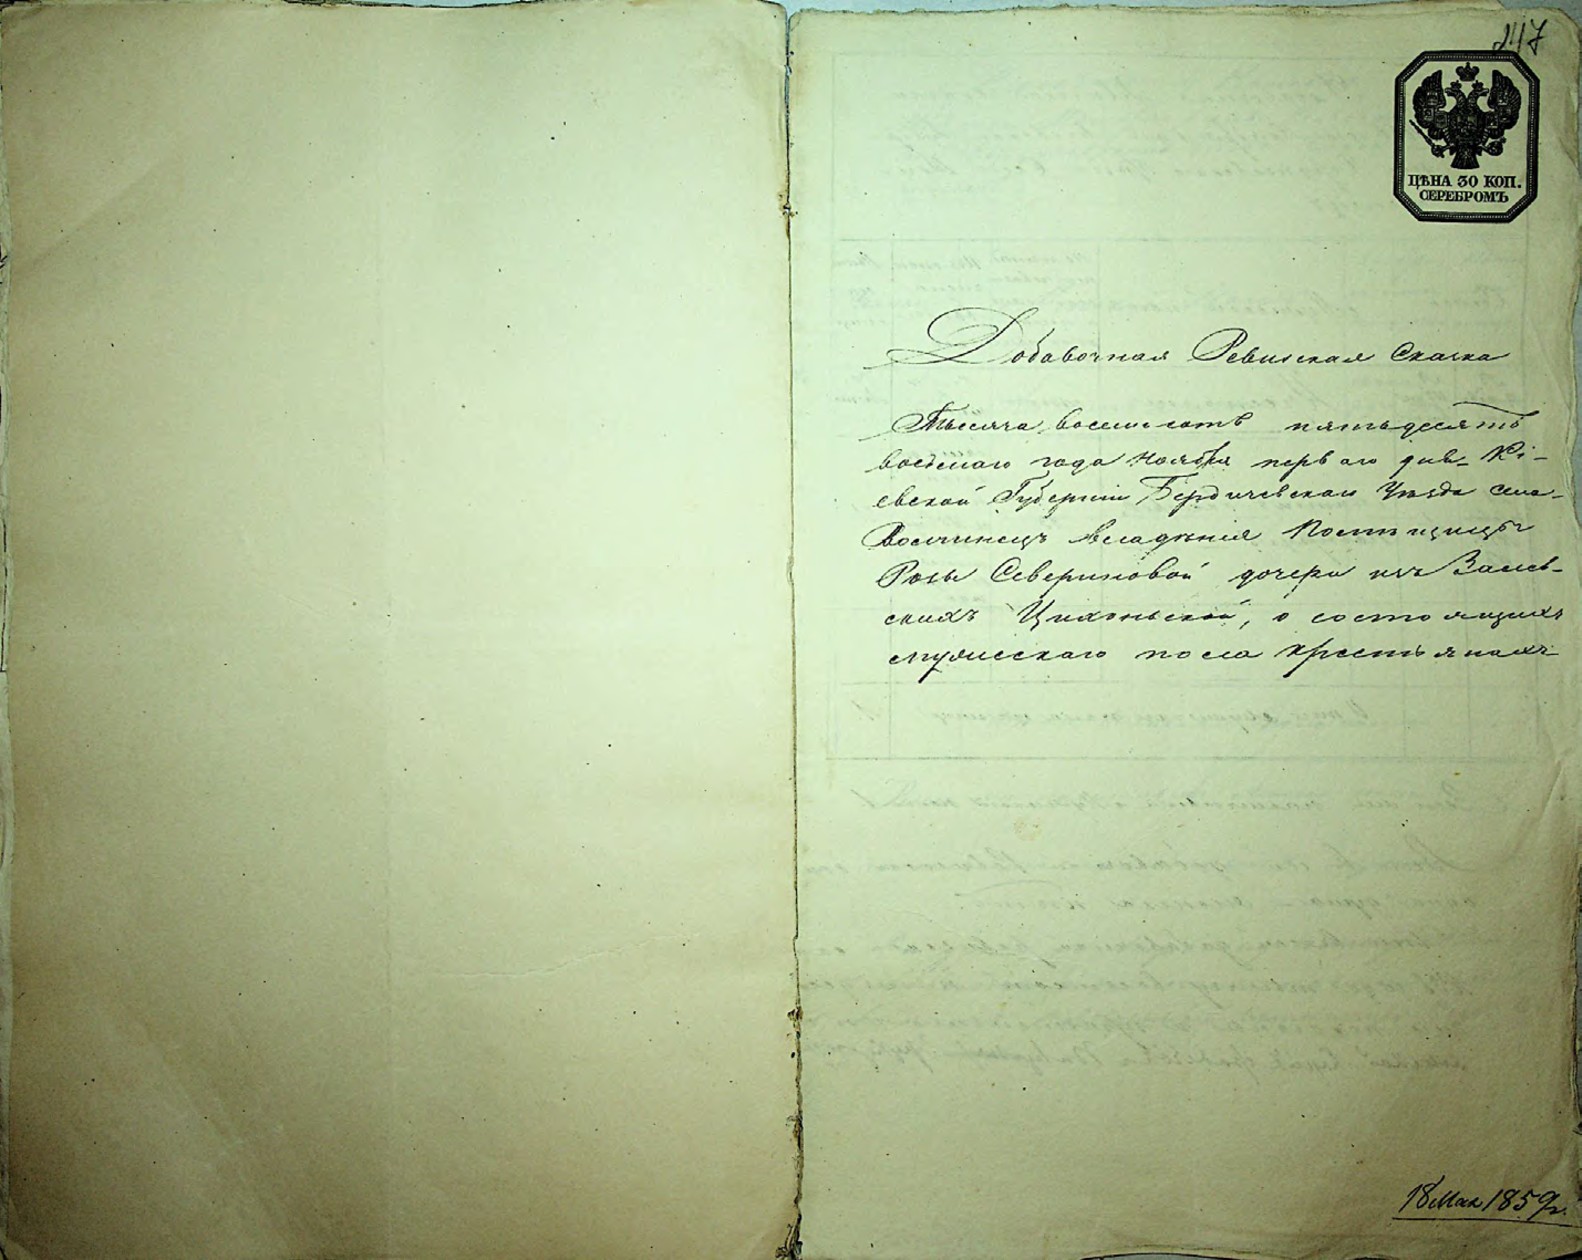 247
ЦѢНА 30 КОП.
СЕРЕБРОМЪ
Добавочная Ревизская Сказка
Тысяча восемьсотъ пятьдесятъ
восьмаго года Ноября перваго дня Кі-
евской Губерніи Бердичевскаго Уѣзда села
Волчинецъ владѣнія Помѣщицы
Розы Севериновой дочери изъ
скихъ Цихоньской, о состоящихъ
мужескаго пола крестьянахъ
18 Мая 1859 г.